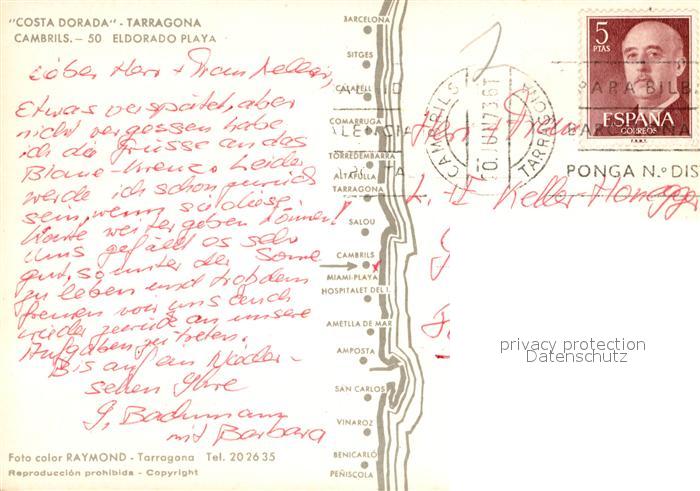 "COSTA DORADA" - TARRAGONA
CAMBRILS. – 50 ELDORADO PLAYA
Lieber Herr + Frau Keller,
Etwas verspätet, aber
nicht vergessen habe
ich die Grüsse an das
Blaue-Kreuz. Leider
werde ich schon zurück
sein, wenn sie diese
Karte weiter geben können!
Uns gefällt es sehr
gut, so unter der Sonne
zu leben und trotzdem
freuen wir uns auch
wieder zurück an unsere
Aufgaben zu treten.
Bis auf ein Wieder-
sehen Ihre
G. Bachmann
mit Barbara
Foto color RAYMOND - Tarragona Tel. 20 26 35
Reproducción prohibida - Copyright
BARCELONA
SITGES
CALAFELL
COMARRUGA
TORREDEMBARRA
ALTAFULLA
TARRAGONA
SALOU
CAMBRILS
MIAMI-PLAYA
HOSPITALET DEL I.
AMETLLA DE MAR
AMPOSTA
SAN CARLOS
VINAROZ
BENICARLÓ
PEÑISCOLA
CAMBRILS
TARRAGONA
PARA BILBAO
VALENCIA
PONGA N.º DIS
5
PTAS
ESPAÑA
CORREOS
F.N.M.T.
Herr + Frau
Keller Honegger
privacy protection
Datenschutz